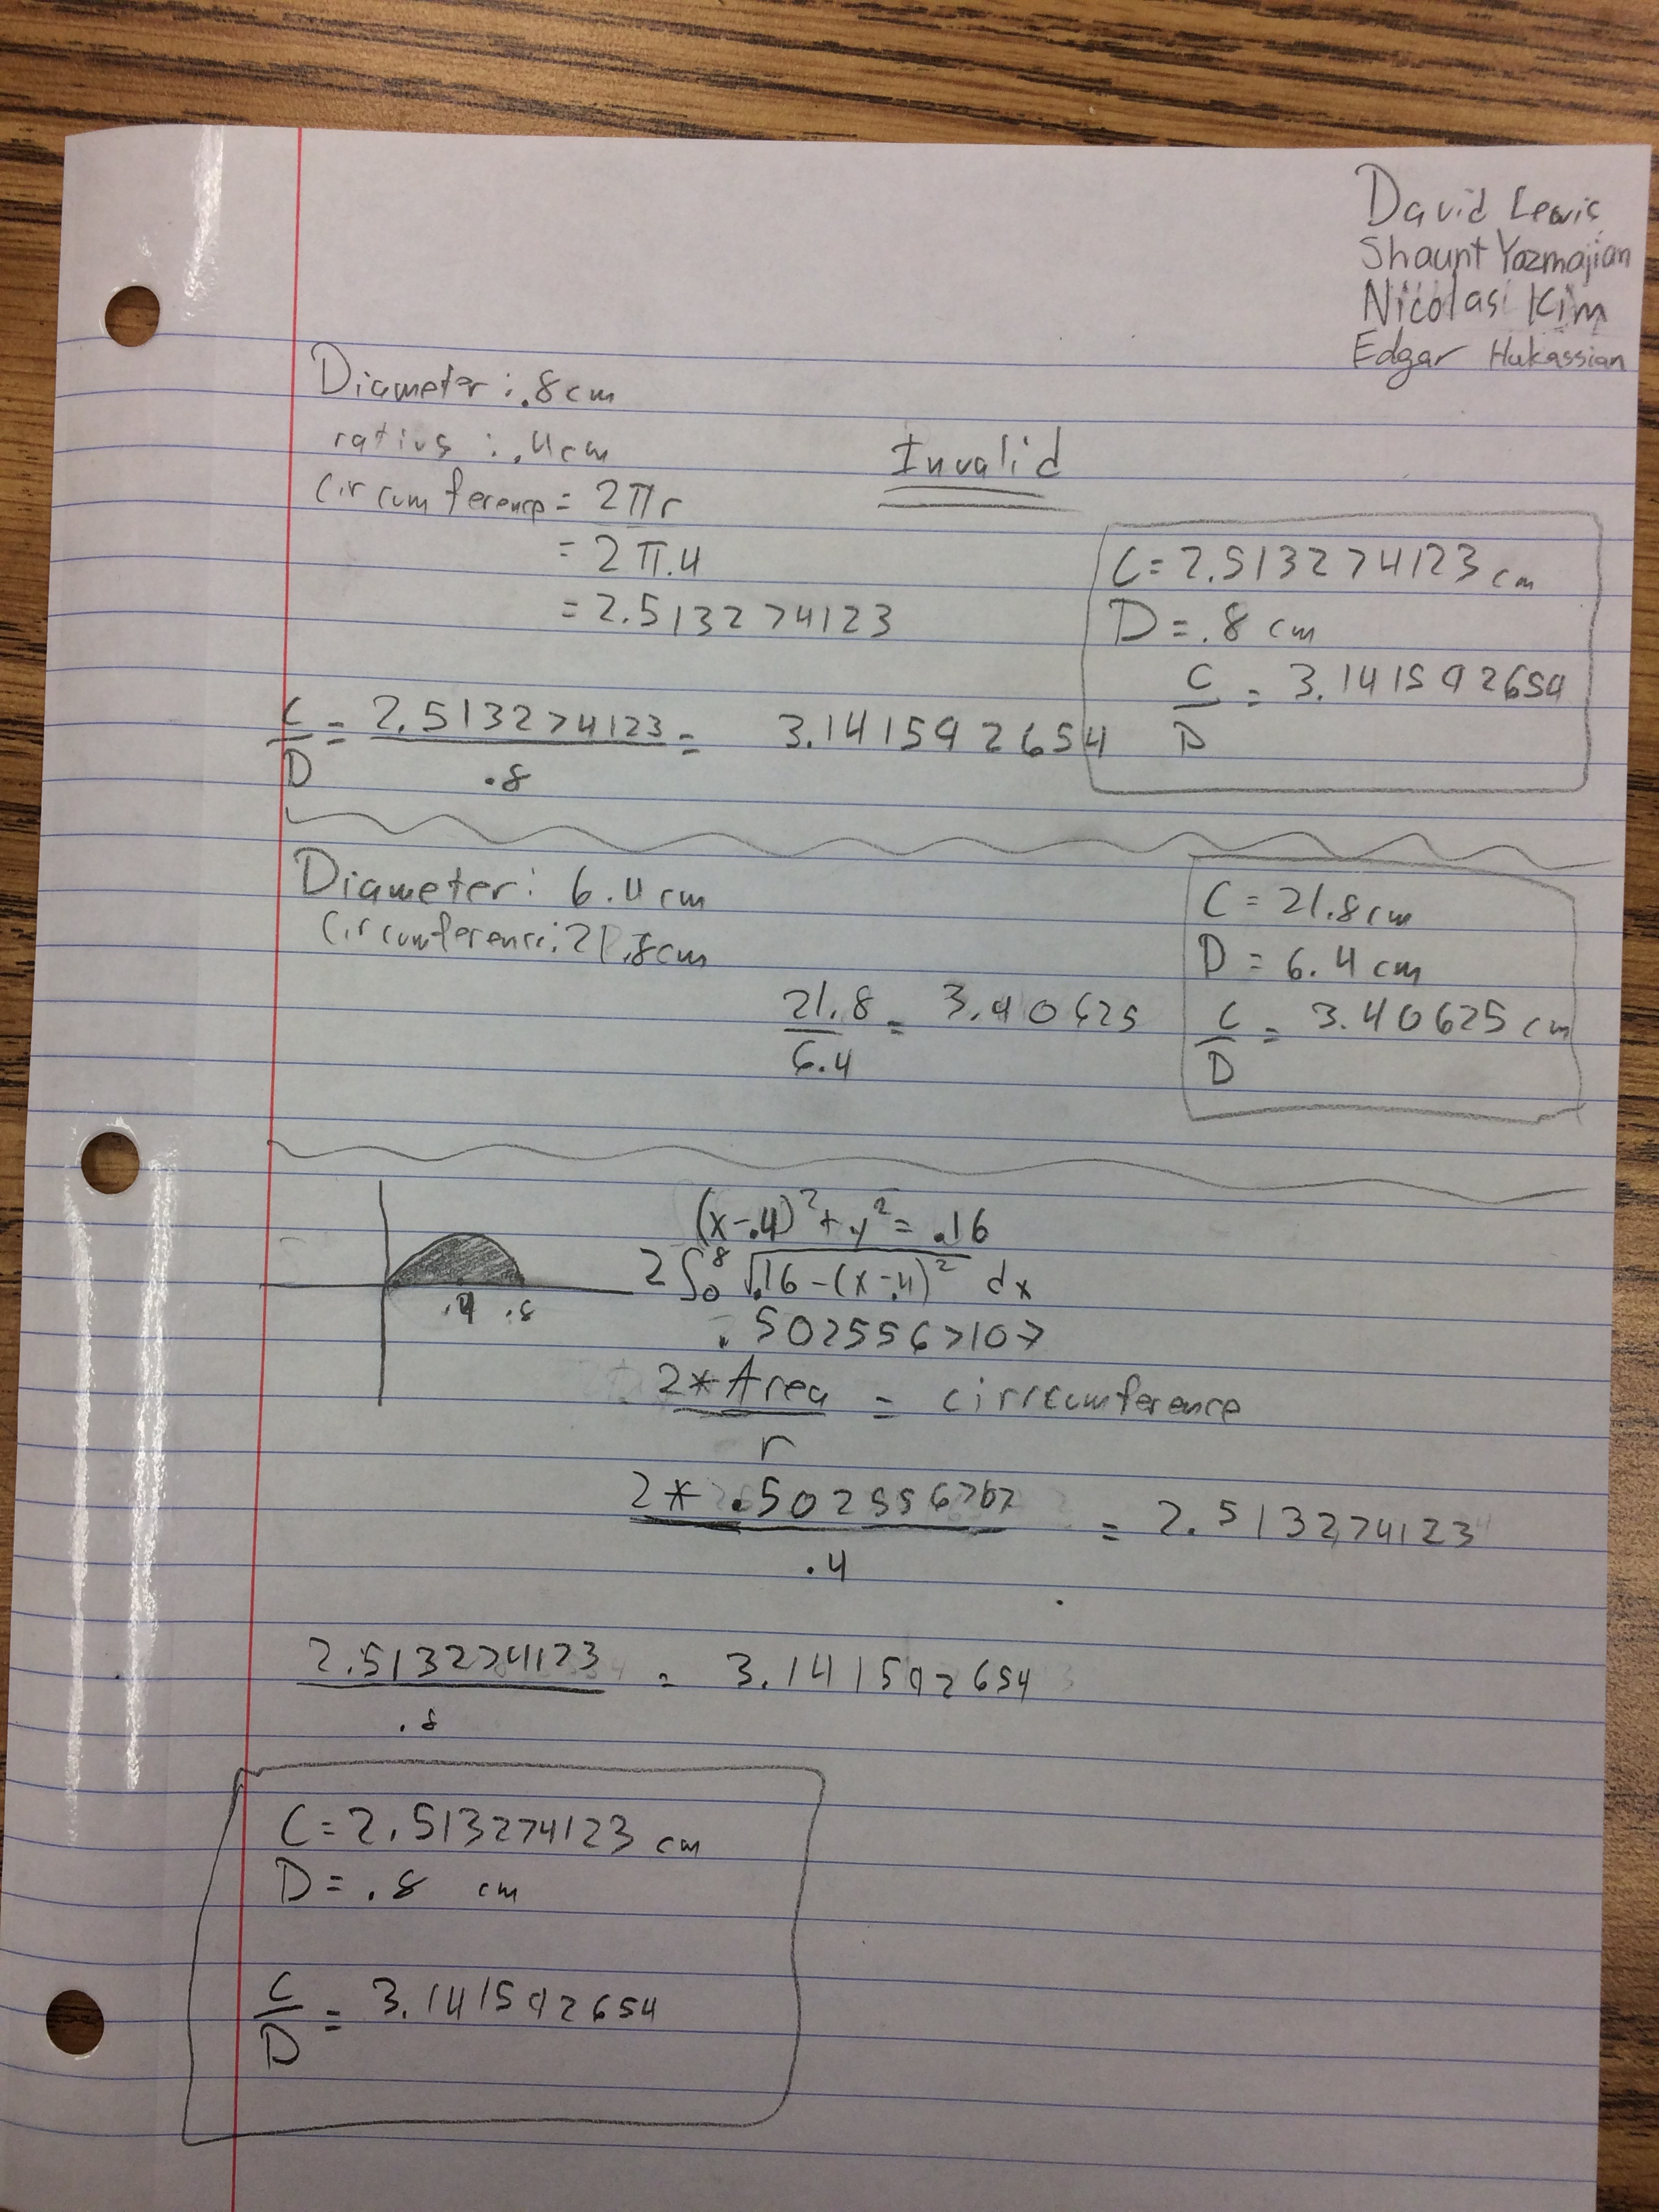 David Lewis
Shaunt Yazmajian
Nicolas Kim
Edgar Hukassian
Diameter: .8cm
ratius: .4cm
Circumference = 2πr
= 2π.4
= 2.513274123
Invalid
C = 2.513274123 cm
D = .8 cm
C/D = 3.141592654
C/D = 2.513274123/.8 = 3.141592654
Diameter: 6.4 cm
Circumference: 21.8cm
21.8/6.4 = 3.40625
C = 21.8cm
D = 6.4 cm
C/D = 3.40625 cm
.4 .8
(x-.4)²+y² = .16
2∫₀^.8 √.16-(x-.4)² dx
.5025567107
2*Area/r = circcumference
2* .502556707/.4 = 2.513274123
2.513274123/.8 = 3.141592654
C = 2.513274123 cm
D = .8 cm
C/D = 3.141592654